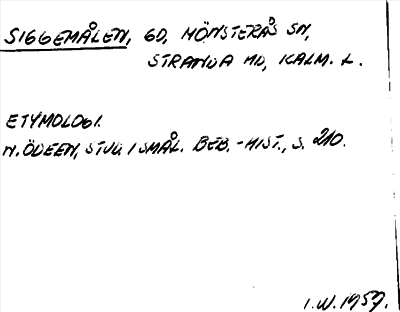 SIGGEMÅLEN, GD, MÖNSTERÅS SN,
STRANDA HD, KALM. L.
ETYMOLOGI.
N. ÖDEEN, STUD I SMÅL. BEB.-HIST., S. 210.
I.W. 1959.